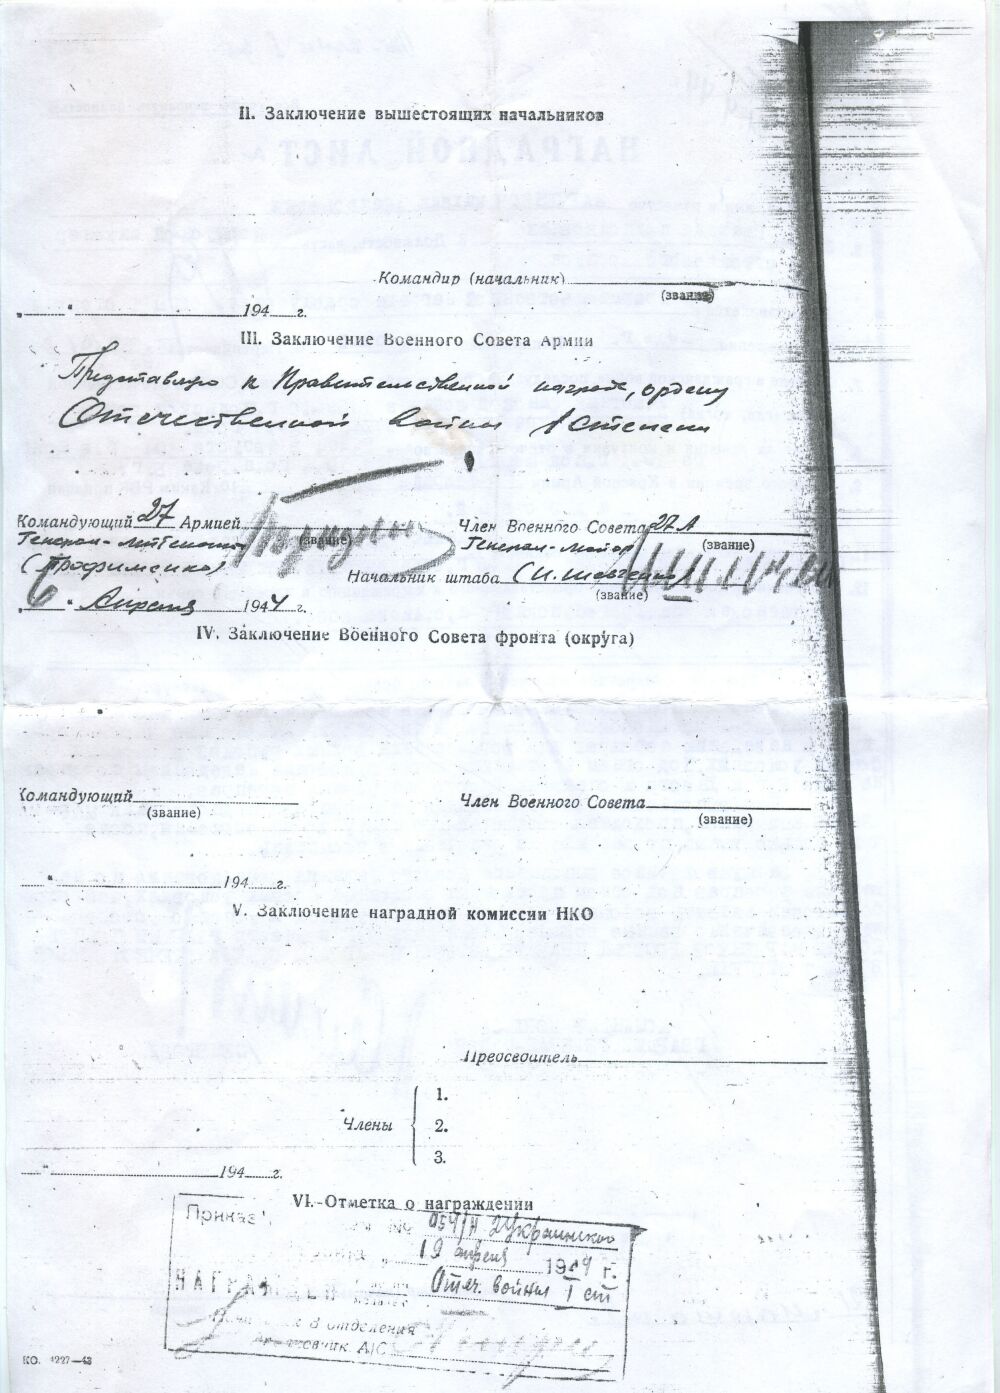 II. Заключение вышестоящих начальников
Командир (начальник)
(звание)
„ “ 194 г.
III. Заключение Военного Совета Армии
Представляю к Правительственной награде, ордену
Отечественной войны 1 степени
Командующий 27 Армией
(звание)
Генерал-лейтенант
(Трофименко)
Член Военного Совета 27 А
(звание)
Генерал-майор
Начальник штаба (И. Шевченко)
(звание)
„6“ Апреля 1944 г.
IV. Заключение Военного Совета фронта (округа)
Командующий
(звание)
Член Военного Совета
(звание)
„ “ 194 г.
V. Заключение наградной комиссии НКО
Председатель
Члены
1.
2.
3.
„ “ 194 г.
VI. Отметка о награждении
Приказ № 054/Н 2 Украинского
19 апреля 1944 г.
Отеч. войны I ст
отделения